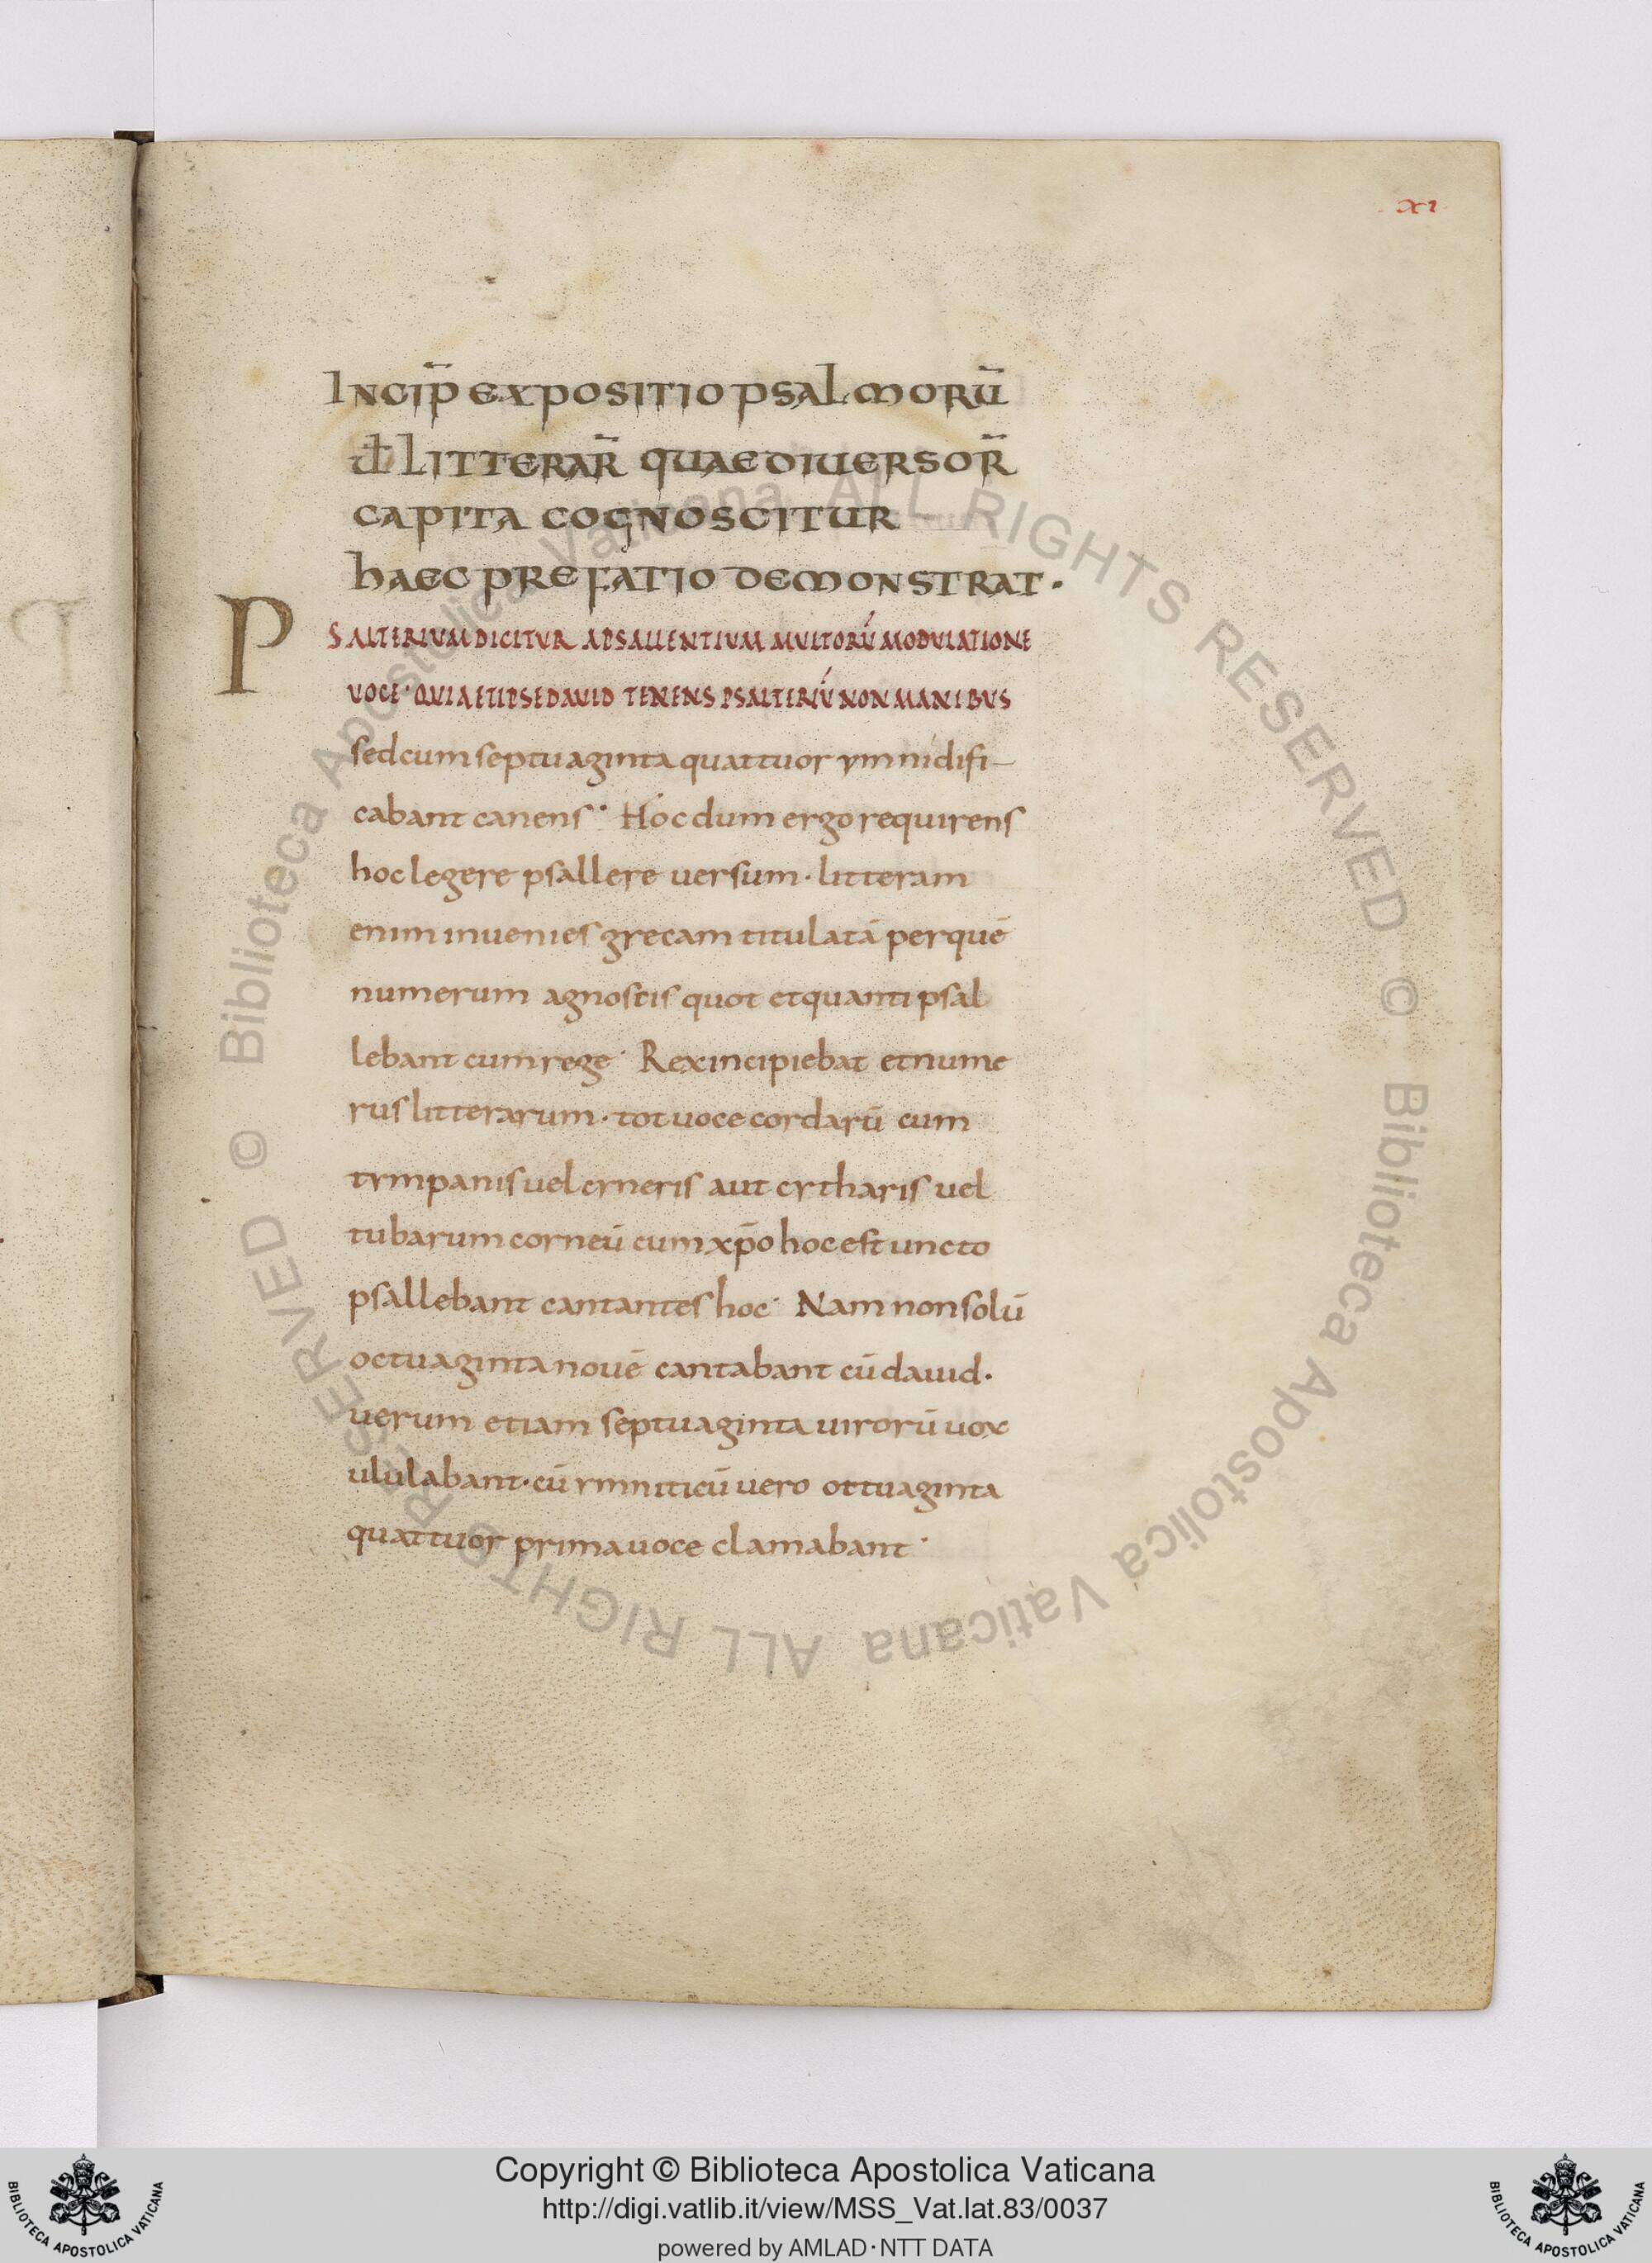 xi
Incip̄ expositio psalmorū
đ litterar̄ quae diuersor̄
capita cognoscitur
haec prefatio demonstrat·
PSALTERIUM DICITVR APSALLENTIUM MULTORŪ MODVLATIONE
VOCE· QUIA ET IPSE DAUID TENENS PSALTERIŪ NON MANIBUS
sed cum septuaginta quattuor ymnidifi-
cabant canens· Hoc dum ergo requirens
hoc legere psallere uersum· litteram
enim inuenies grecam titulatā per quē
numerum agnoscis quot et quanti psal
lebant cum rege· Rex incipiebat et nume
rus litterarum· tot uoce cordarū cum
tympanis uel cyneris aut cytharis uel
tubarum corneū cum xp̄o hoc est uncto
psallebant cantantes hoc· Nam non solū
octuaginta nouē cantabant cū dauid·
uerum etiam septuaginta uirorū uox
ululabant· cū ymniticū uero octuaginta
quattuor prima uoce clamabant·
© Biblioteca Apostolica Vaticana ALL RIGHTS RESERVED © Biblioteca Apostolica Vaticana ALL RIGHTS RESERVED
Copyright © Biblioteca Apostolica Vaticana
http://digi.vatlib.it/view/MSS_Vat.lat.83/0037
powered by AMLAD·NTT DATA
BIBLIOTECA APOSTOLICA VATICANA
BIBLIOTECA APOSTOLICA VATICANA